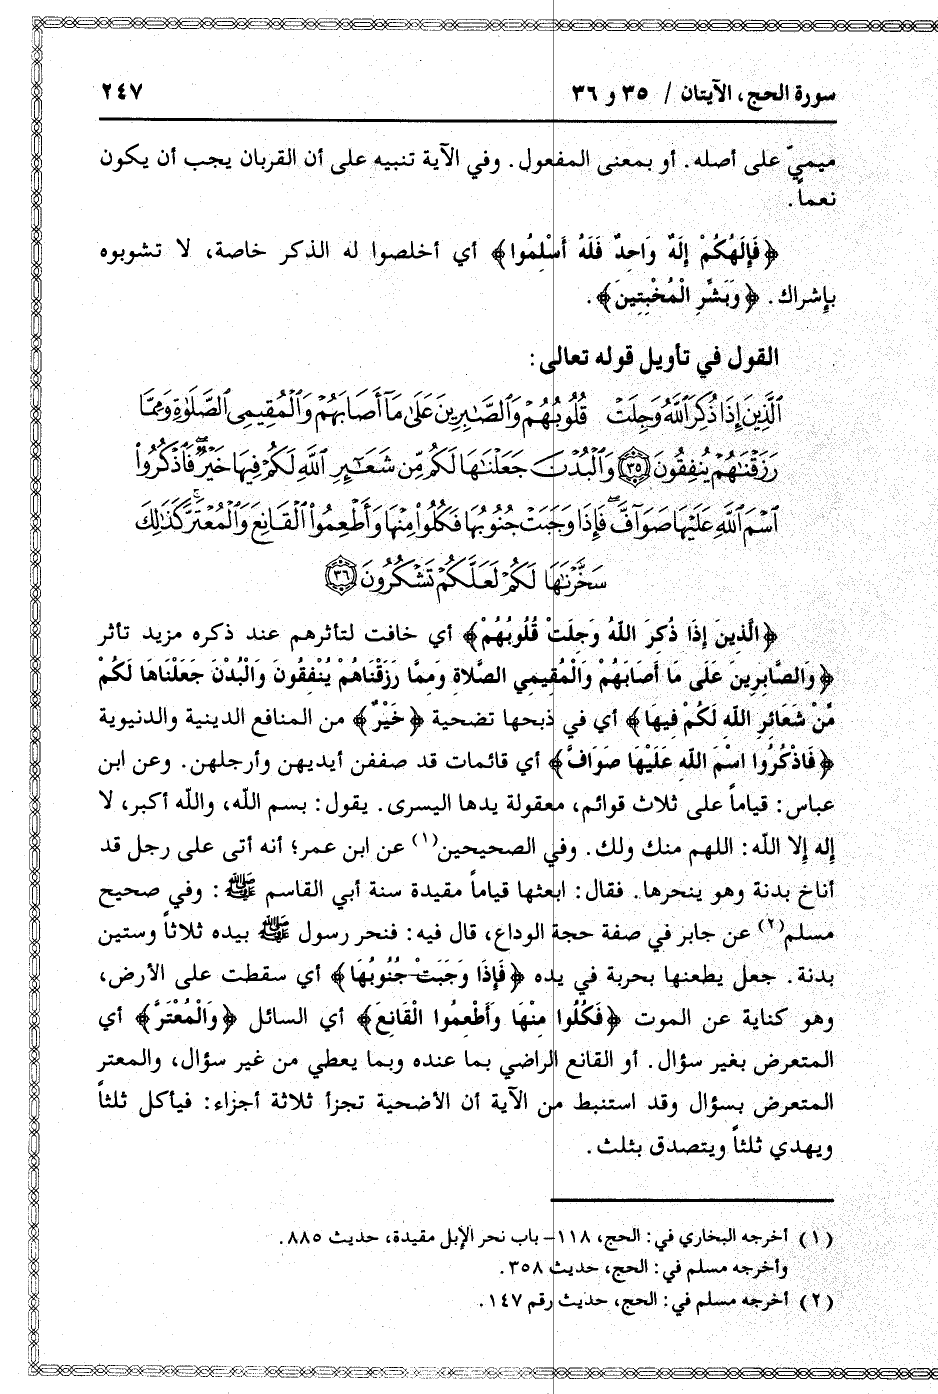 سورة الحج، الآيتان / ٣٥ و ٣٦ ٢٤٧
ميميّ على أصله. أو بمعنى المفعول. وفي الآية تنبيه على أن القربان يجب أن يكون
نعماً.
﴿فَإِلَهُكُمْ إِلَهٌ وَاحِدٌ فَلَهُ أَسْلِمُوا﴾ أي أخلصوا له الذكر خاصة، لا تشوبوه
بإشراك. ﴿وَبَشِّرِ الْمُخْبِتِينَ﴾.
القول في تأويل قوله تعالى:
ٱلَّذِينَ إِذَا ذُكِرَ ٱللَّهُ وَجِلَتْ قُلُوبُهُمْ وَٱلصَّـٰبِرِينَ عَلَىٰ مَآ أَصَابَهُمْ وَٱلْمُقِيمِى ٱلصَّلَوٰةِ وَمِمَّا
رَزَقْنَـٰهُمْ يُنفِقُونَ ﴿٣٥﴾ وَٱلْبُدْنَ جَعَلْنَـٰهَا لَكُم مِّن شَعَـٰٓئِرِ ٱللَّهِ لَكُمْ فِيهَا خَيْرٌ ۖ فَٱذْكُرُوا۟
ٱسْمَ ٱللَّهِ عَلَيْهَا صَوَآفَّ ۖ فَإِذَا وَجَبَتْ جُنُوبُهَا فَكُلُوا۟ مِنْهَا وَأَطْعِمُوا۟ ٱلْقَانِعَ وَٱلْمُعْتَرَّ ۚ كَذَٰلِكَ
سَخَّرْنَـٰهَا لَكُمْ لَعَلَّكُمْ تَشْكُرُونَ ﴿٣٦﴾
﴿الَّذِينَ إِذَا ذُكِرَ اللَّهُ وَجِلَتْ قُلُوبُهُمْ﴾ أي خافت لتأثرهم عند ذكره مزيد تأثر
﴿وَالصَّابِرِينَ عَلَى مَا أَصَابَهُمْ وَالْمُقِيمِي الصَّلَاةِ وَمِمَّا رَزَقْنَاهُمْ يُنْفِقُونَ وَالْبُدْنَ جَعَلْنَاهَا لَكُمْ
مِّنْ شَعَائِرِ اللَّهِ لَكُمْ فِيهَا﴾ أي في ذبحها تضحية ﴿خَيْرٌ﴾ من المنافع الدينية والدنيوية
﴿فَاذْكُرُوا اسْمَ اللَّهِ عَلَيْهَا صَوَافَّ﴾ أي قائمات قد صففن أيديهن وأرجلهن. وعن ابن
عباس: قياماً على ثلاث قوائم، معقولة يدها اليسرى. يقول: بسم الله، والله أكبر، لا
إله إلا الله: اللهم منك ولك. وفي الصحيحين(١) عن ابن عمر؛ أنه أتى على رجل قد
أناخ بدنة وهو ينحرها. فقال: ابعثها قياماً مقيدة سنة أبي القاسم ﷺ: وفي صحيح
مسلم(٢) عن جابر في صفة حجة الوداع، قال فيه: فنحر رسول ﷺ بيده ثلاثاً وستين
بدنة. جعل يطعنها بحربة في يده ﴿فَإِذَا وَجَبَتْ جُنُوبُهَا﴾ أي سقطت على الأرض،
وهو كناية عن الموت ﴿فَكُلُوا مِنْهَا وَأَطْعِمُوا الْقَانِعَ﴾ أي السائل ﴿وَالْمُعْتَرَّ﴾ أي
المتعرض بغير سؤال. أو القانع الراضي بما عنده وبما يعطي من غير سؤال، والمعتر
المتعرض بسؤال وقد استنبط من الآية أن الأضحية تجزأ ثلاثة أجزاء: فيأكل ثلثاً
ويهدي ثلثاً ويتصدق بثلث.
(١) أخرجه البخاري في: الحج، ١١٨- باب نحر الإبل مقيدة، حديث ٨٨٥.
وأخرجه مسلم في: الحج، حديث ٣٥٨.
(٢) أخرجه مسلم في: الحج، حديث رقم ١٤٧.